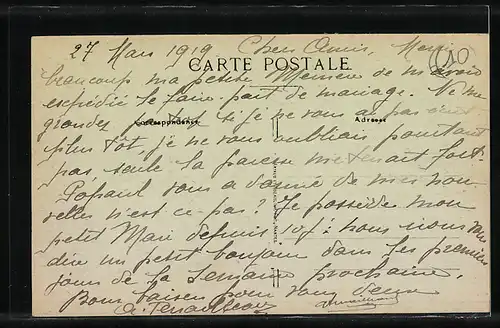 27 Mars 1919 Chers Amis, Merci
CARTE POSTALE
beaucoup ma petite de m'avoir
expédié le faire-part de mariage. Ne me
grondez pas si je ne vous ai pas écrit
Correspondance Adresse
plus tôt, je ne vous oubliais pourtant
pas, seule la paresse me tenait fort.
Popaul vous a donné de mes nou
velles n'est ce-pas? Je possède mon
petit Mari depuis 10 j: nous irons vous
dire un petit bonjour dans les premiers
jours de la semaine prochaine.
Bons baisers pour vous deux